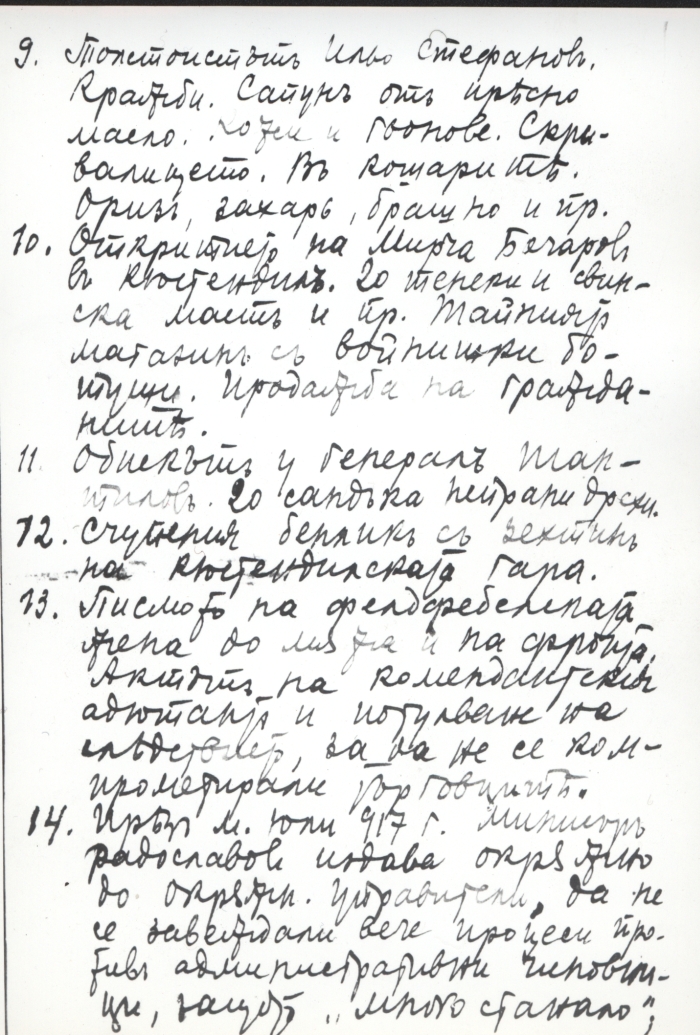 9. Толстоистътъ Илью Стефановъ.
Кражби. Сапунъ отъ прѣсно
масло. Кожи и гьонове. Скри-
валището. Въ кошаритѣ.
Оризъ, захаръ, брашно и пр.
10. Откритието на Мирча Бечаровъ
въ Кюстендилъ. 20 тенекии свин-
ска масть и пр. Тайниятъ
магазинъ съ войнишки бо-
туши. Продажба на гражда-
нитѣ.
11. Обискътъ у генералъ Тан-
тиловъ. 20 сандъка
12. Счупения бенликъ съ зехтинъ
на Кюстендилската гара.
13. Писмото на фелдфебелската
жена до мѫжа ѝ на фронта.
Актътъ на комендантския
адютантъ и потулване на
следствието, за да не се ком-
прометирали търговцитѣ.
14. Прѣзъ м. юли 917 г. Министъръ
Радославовъ издава окрѫжно
до окрѫжн. управители, да не
се завеждали вече процеси про-
тивъ административни чиновни-
ци, защото „много станало";